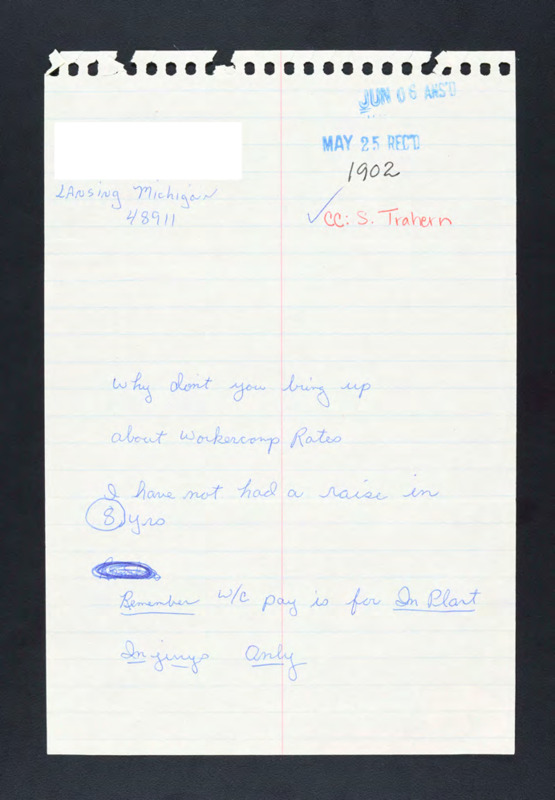 JUN 06 ANS'D
MAY 25 REC'D
1902
Lansing Michigan
48911
CC: S. Trahern
Why don't you bring up
about Workercomp Rates
I have not had a raise in
8 yrs
Remember w/c pay is for In Plant
Injurys Only